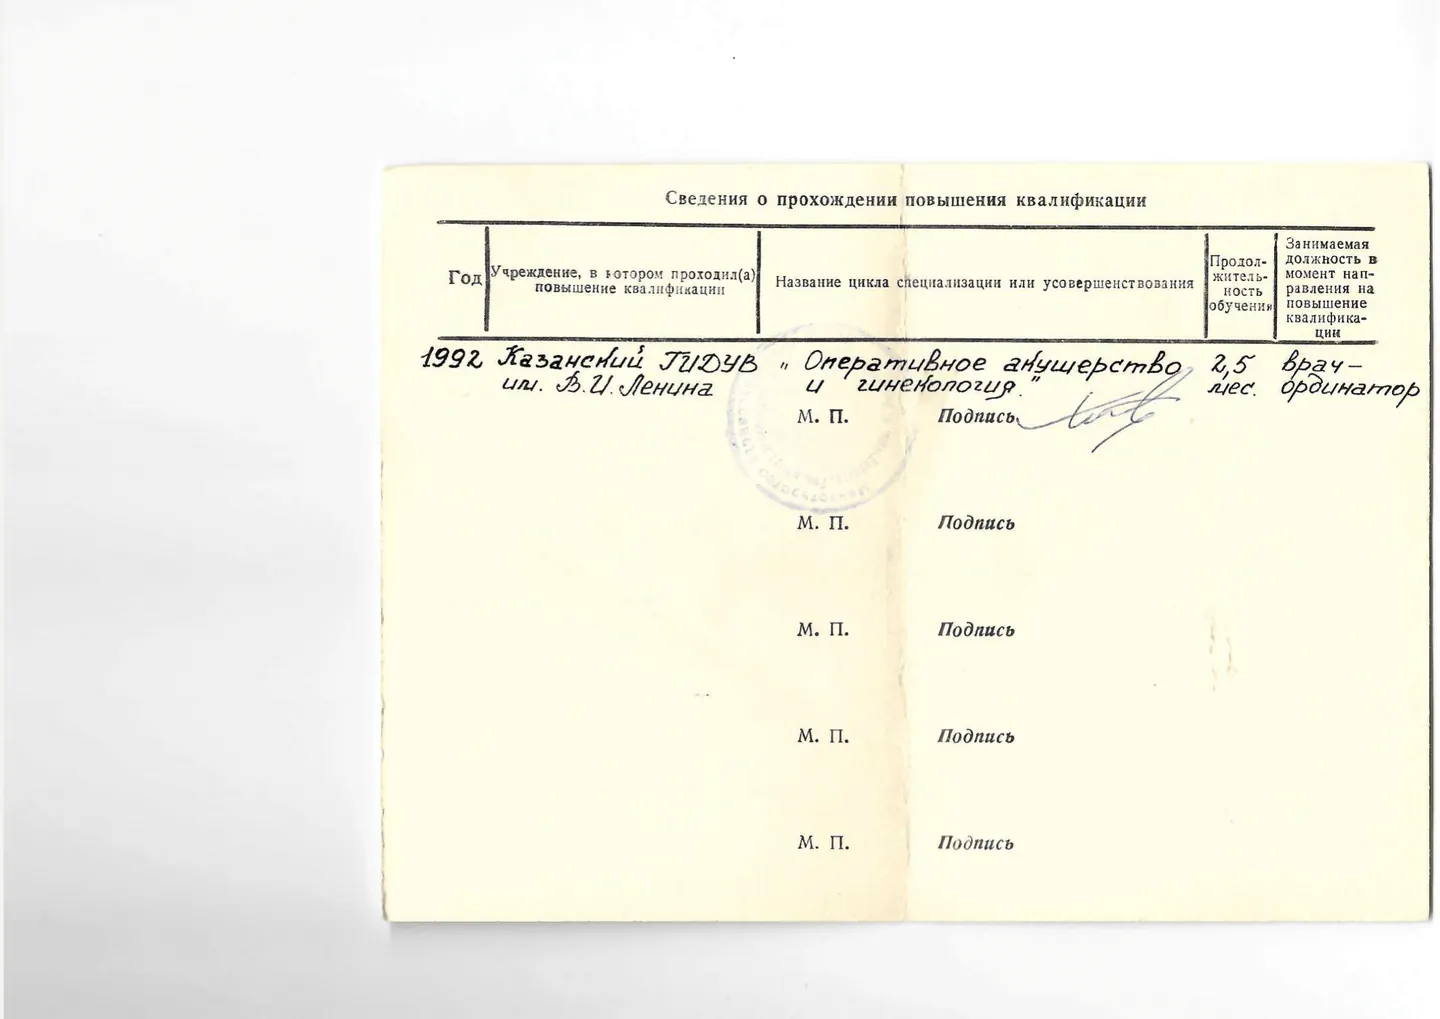 Сведения о прохождении повышения квалификации
Год
Учреждение, в котором проходил(а)
повышение квалификации
Название цикла специализации или усовершенствования
Продол-
житель-
ность
обучения
Занимаемая
должность в
момент нап-
равления на
повышение
квалифика-
ции
1992 Казанский ГИДУВ „ Оперативное акушерство 2,5 врач –
им. В.И. Ленина и гинекология." мес. ординатор
М. П. Подпись
М. П. Подпись
М. П. Подпись
М. П. Подпись
М. П. Подпись